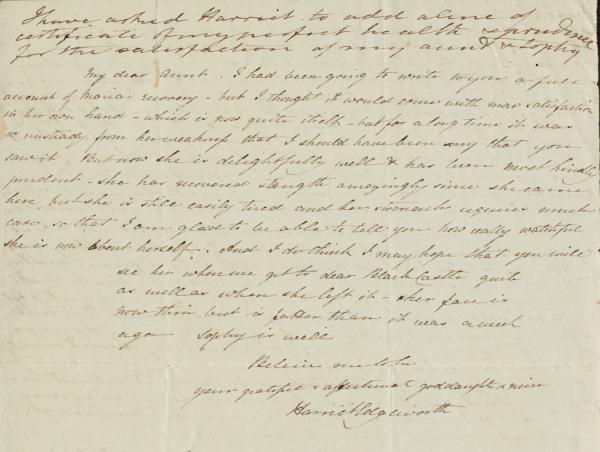 I have asked Harriet to add a line of
certificate of my perfect health & prudence
for the satisfaction of my aunt & Sophy
My dear Aunt. I had been going to write to you a full
account of Marias recovery - but I thought it would come with more satisfaction
in her own hand - which is now quite itself - but for a long time it was
so unsteady from her weakness that I should have been sorry that you
saw it. But now she is delightfully well & has been most kindly
prudent - she has recovered strength amazingly since she came
here but she is still easily tired and her stomach requires much
care, so that I am glad to be able to tell you how really watchful
she is now about herself. And I do think I may hope that you will
see her when we get to dear Black Castle quite
as well as when she left it - her face is
now thin but is fatter than it was a week
ago Sophy is well
Believe me to be
your grateful & affectionate goddaughter & niece
Harriet Edgeworth